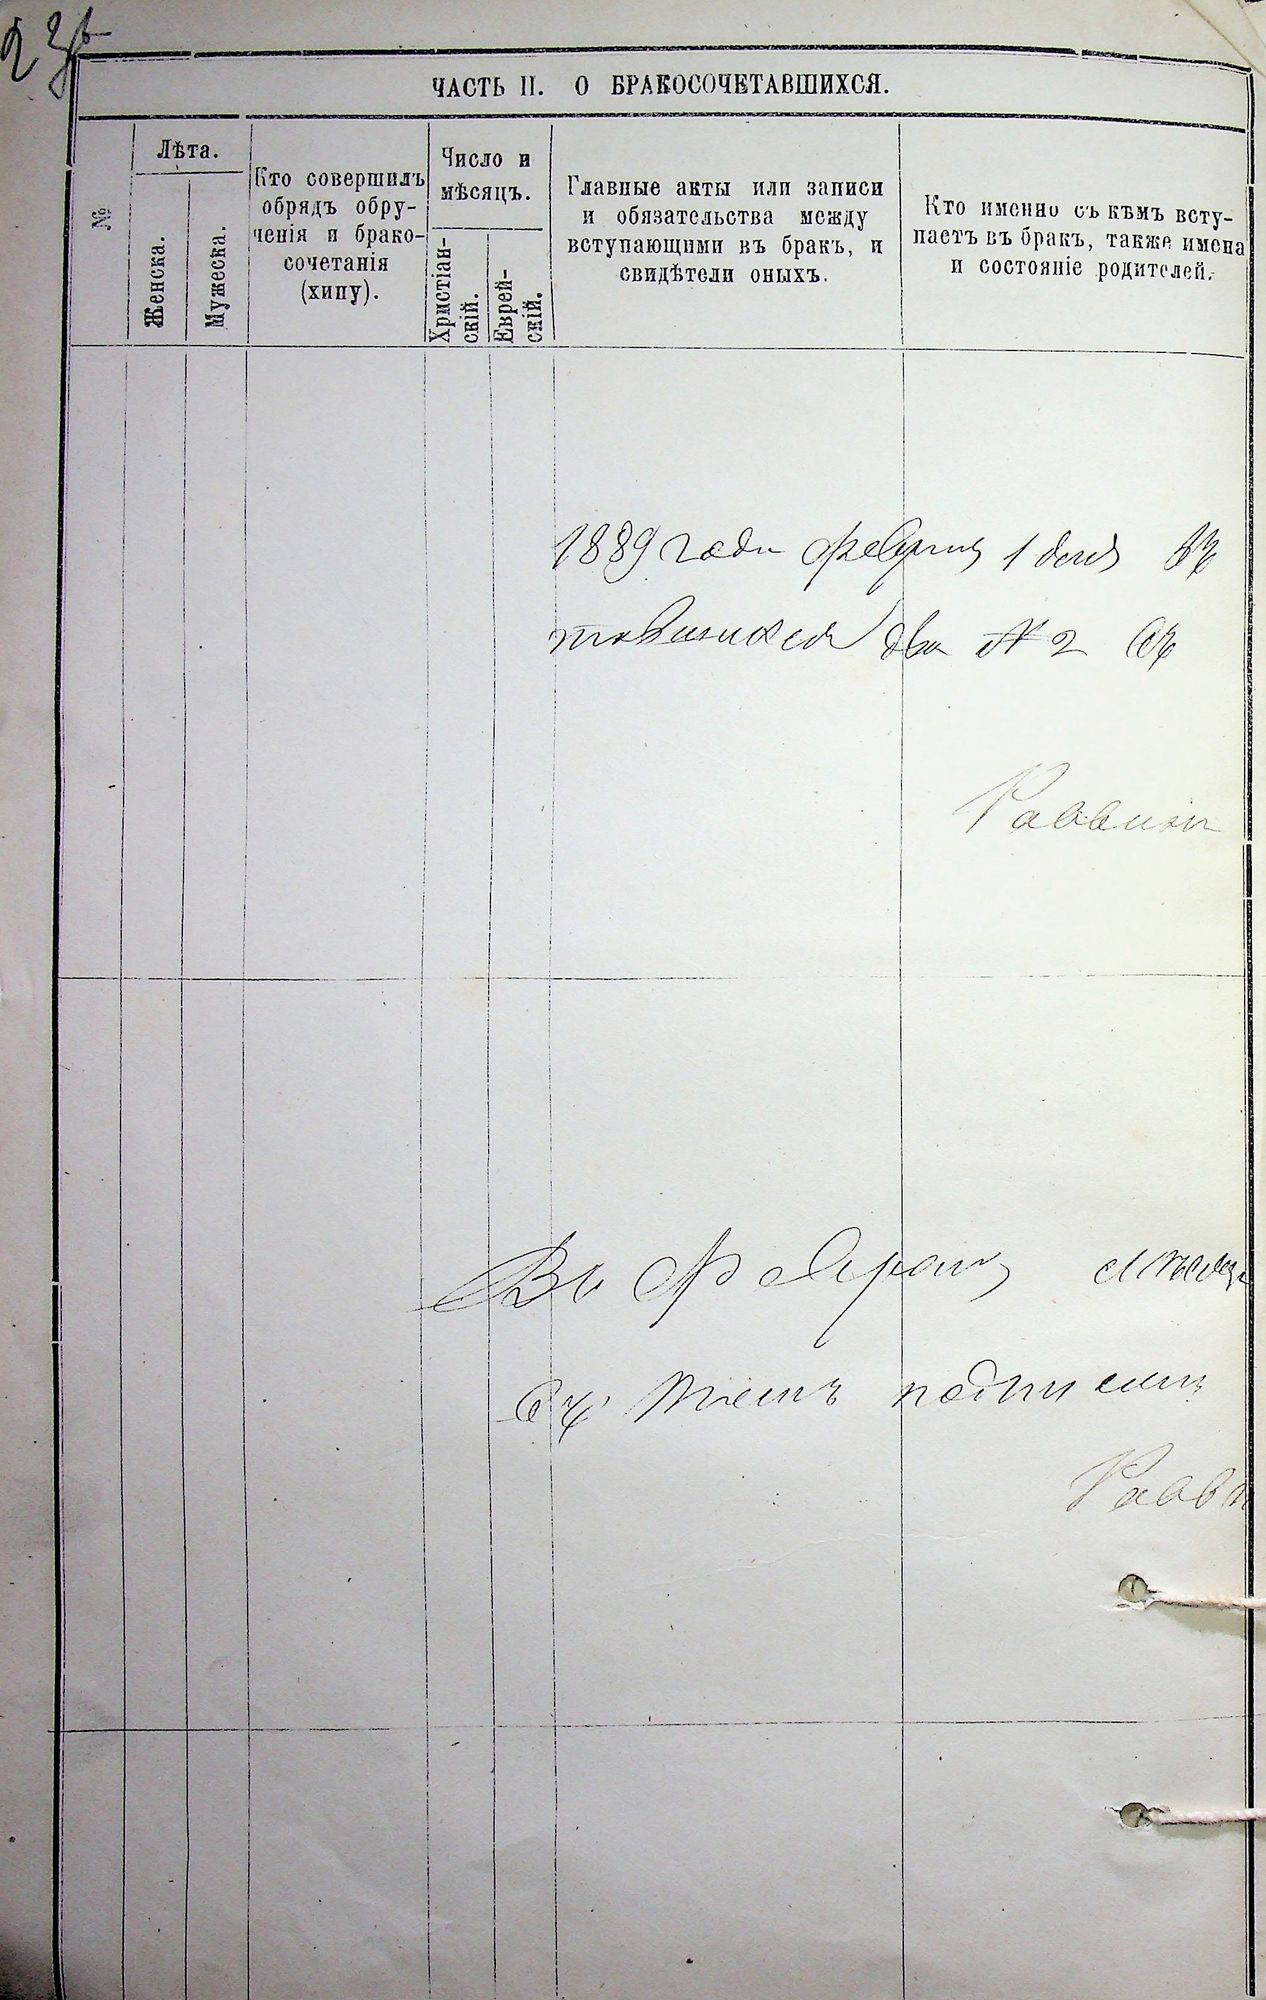 23
ЧАСТЬ II. О БРАКОСОЧЕТАВШИХСЯ.
№
Лѣта.
Женска.
Мужеска.
Кто совершилъ
обрядъ обру-
ченія и брако-
сочетанія
(хипу).
Число и
мѣсяцъ.
Христіан-
скій.
Еврей-
скій.
Главные акты или записи
и обязательства между
вступающими въ бракъ, и
свидѣтели оныхъ.
Кто именно съ кѣмъ всту-
паетъ въ бракъ, также имена
и состояніе родителей.
1889 года февраля 1 дня
два № 2 Съ
Раввинъ
Въ Февралѣ мѣсяц
Съ тѣмъ подписалъ
Равви